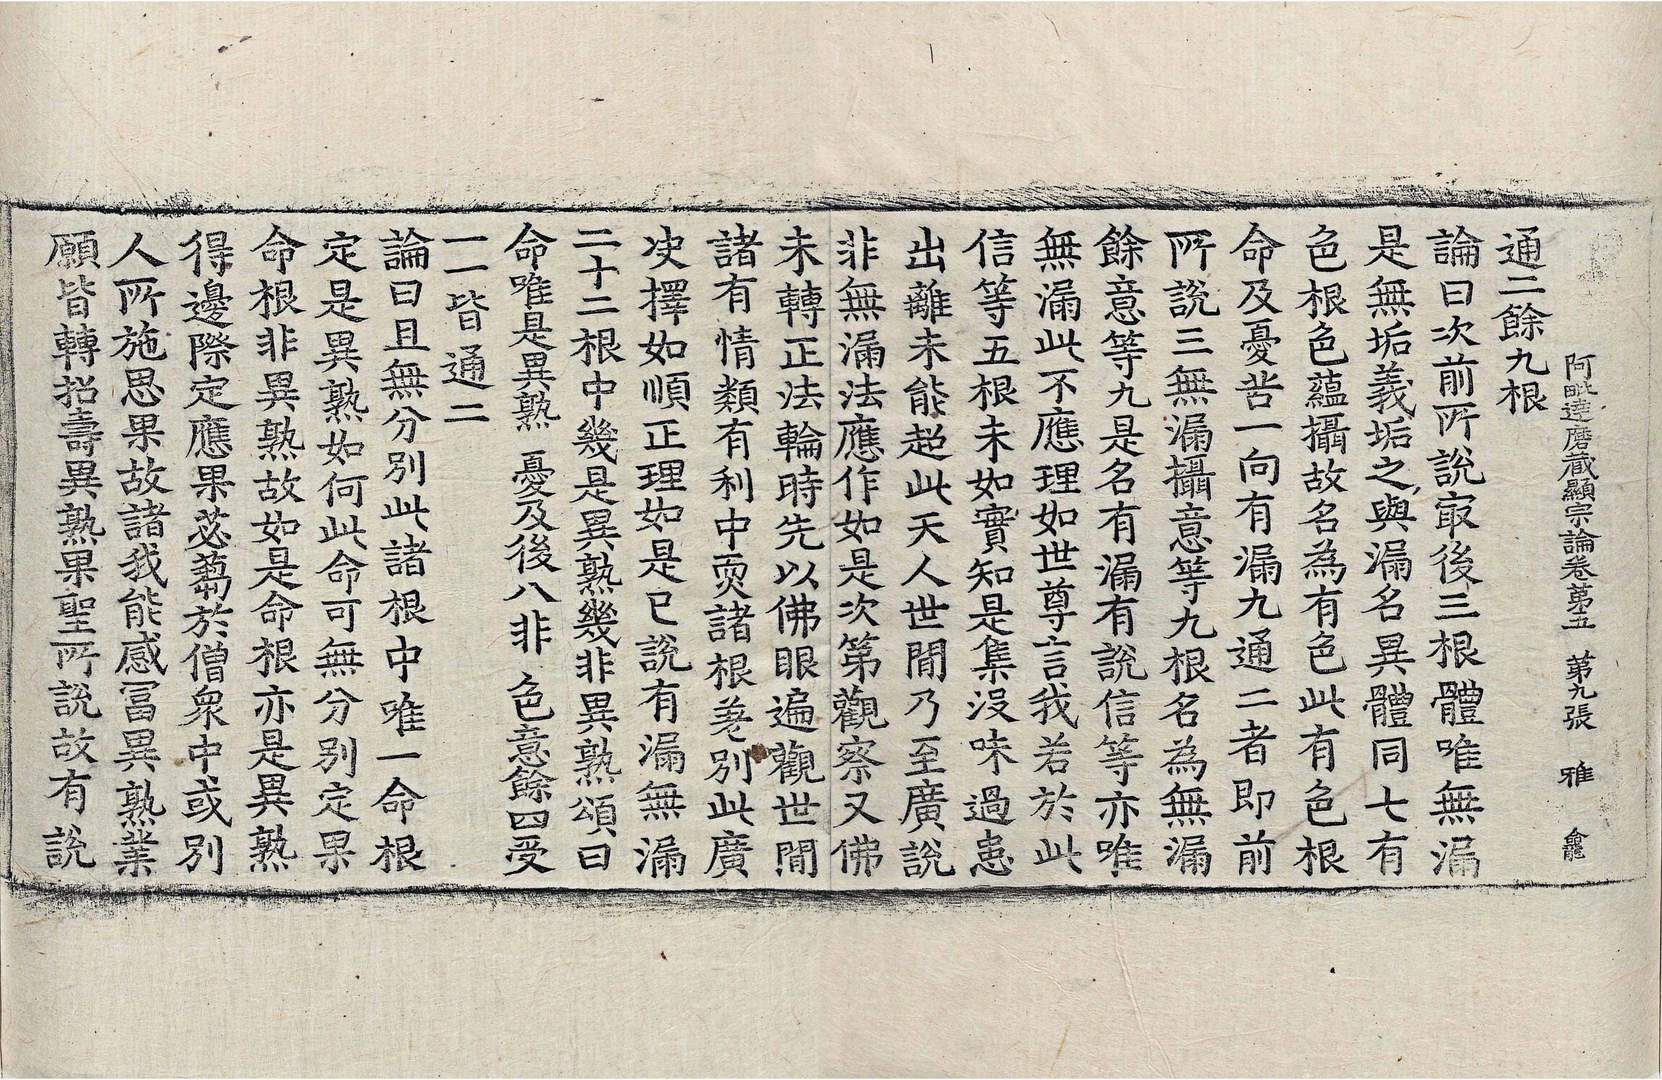 阿毗達磨藏顯宗論卷第五　第九張　雅　龕
通二餘九根
論曰次前所說㝡後三根體唯無漏
是無垢義垢之與漏名異體同七有
色根色蘊攝故名為有色此有色根
命及憂苦一向有漏九通二者即前
所說三無漏攝意等九根名為無漏
餘意等九是名有漏有說信等亦唯
無漏此不應理如世尊言我若於此
信等五根未如實知是集沒味過患
出離未能超此天人世間乃至廣說
非無漏法應作如是次第觀察又佛
未轉正法輪時先以佛眼遍觀世間
諸有情類有利中耎諸根差別此廣
決擇如順正理如是已說有漏無漏
二十二根中幾是異熟幾非異熟頌曰
命唯是異熟　憂及後八非　色意餘四受
一一皆通二
論曰且無分別此諸根中唯一命根
定是異熟如何此命可無分別定果
命根非異熟故如是命根亦是異熟
得邊際定應果苾蒭於僧衆中或別
人所施思果故諸我能感冨異熟業
願皆轉招壽異熟果聖所說故有說